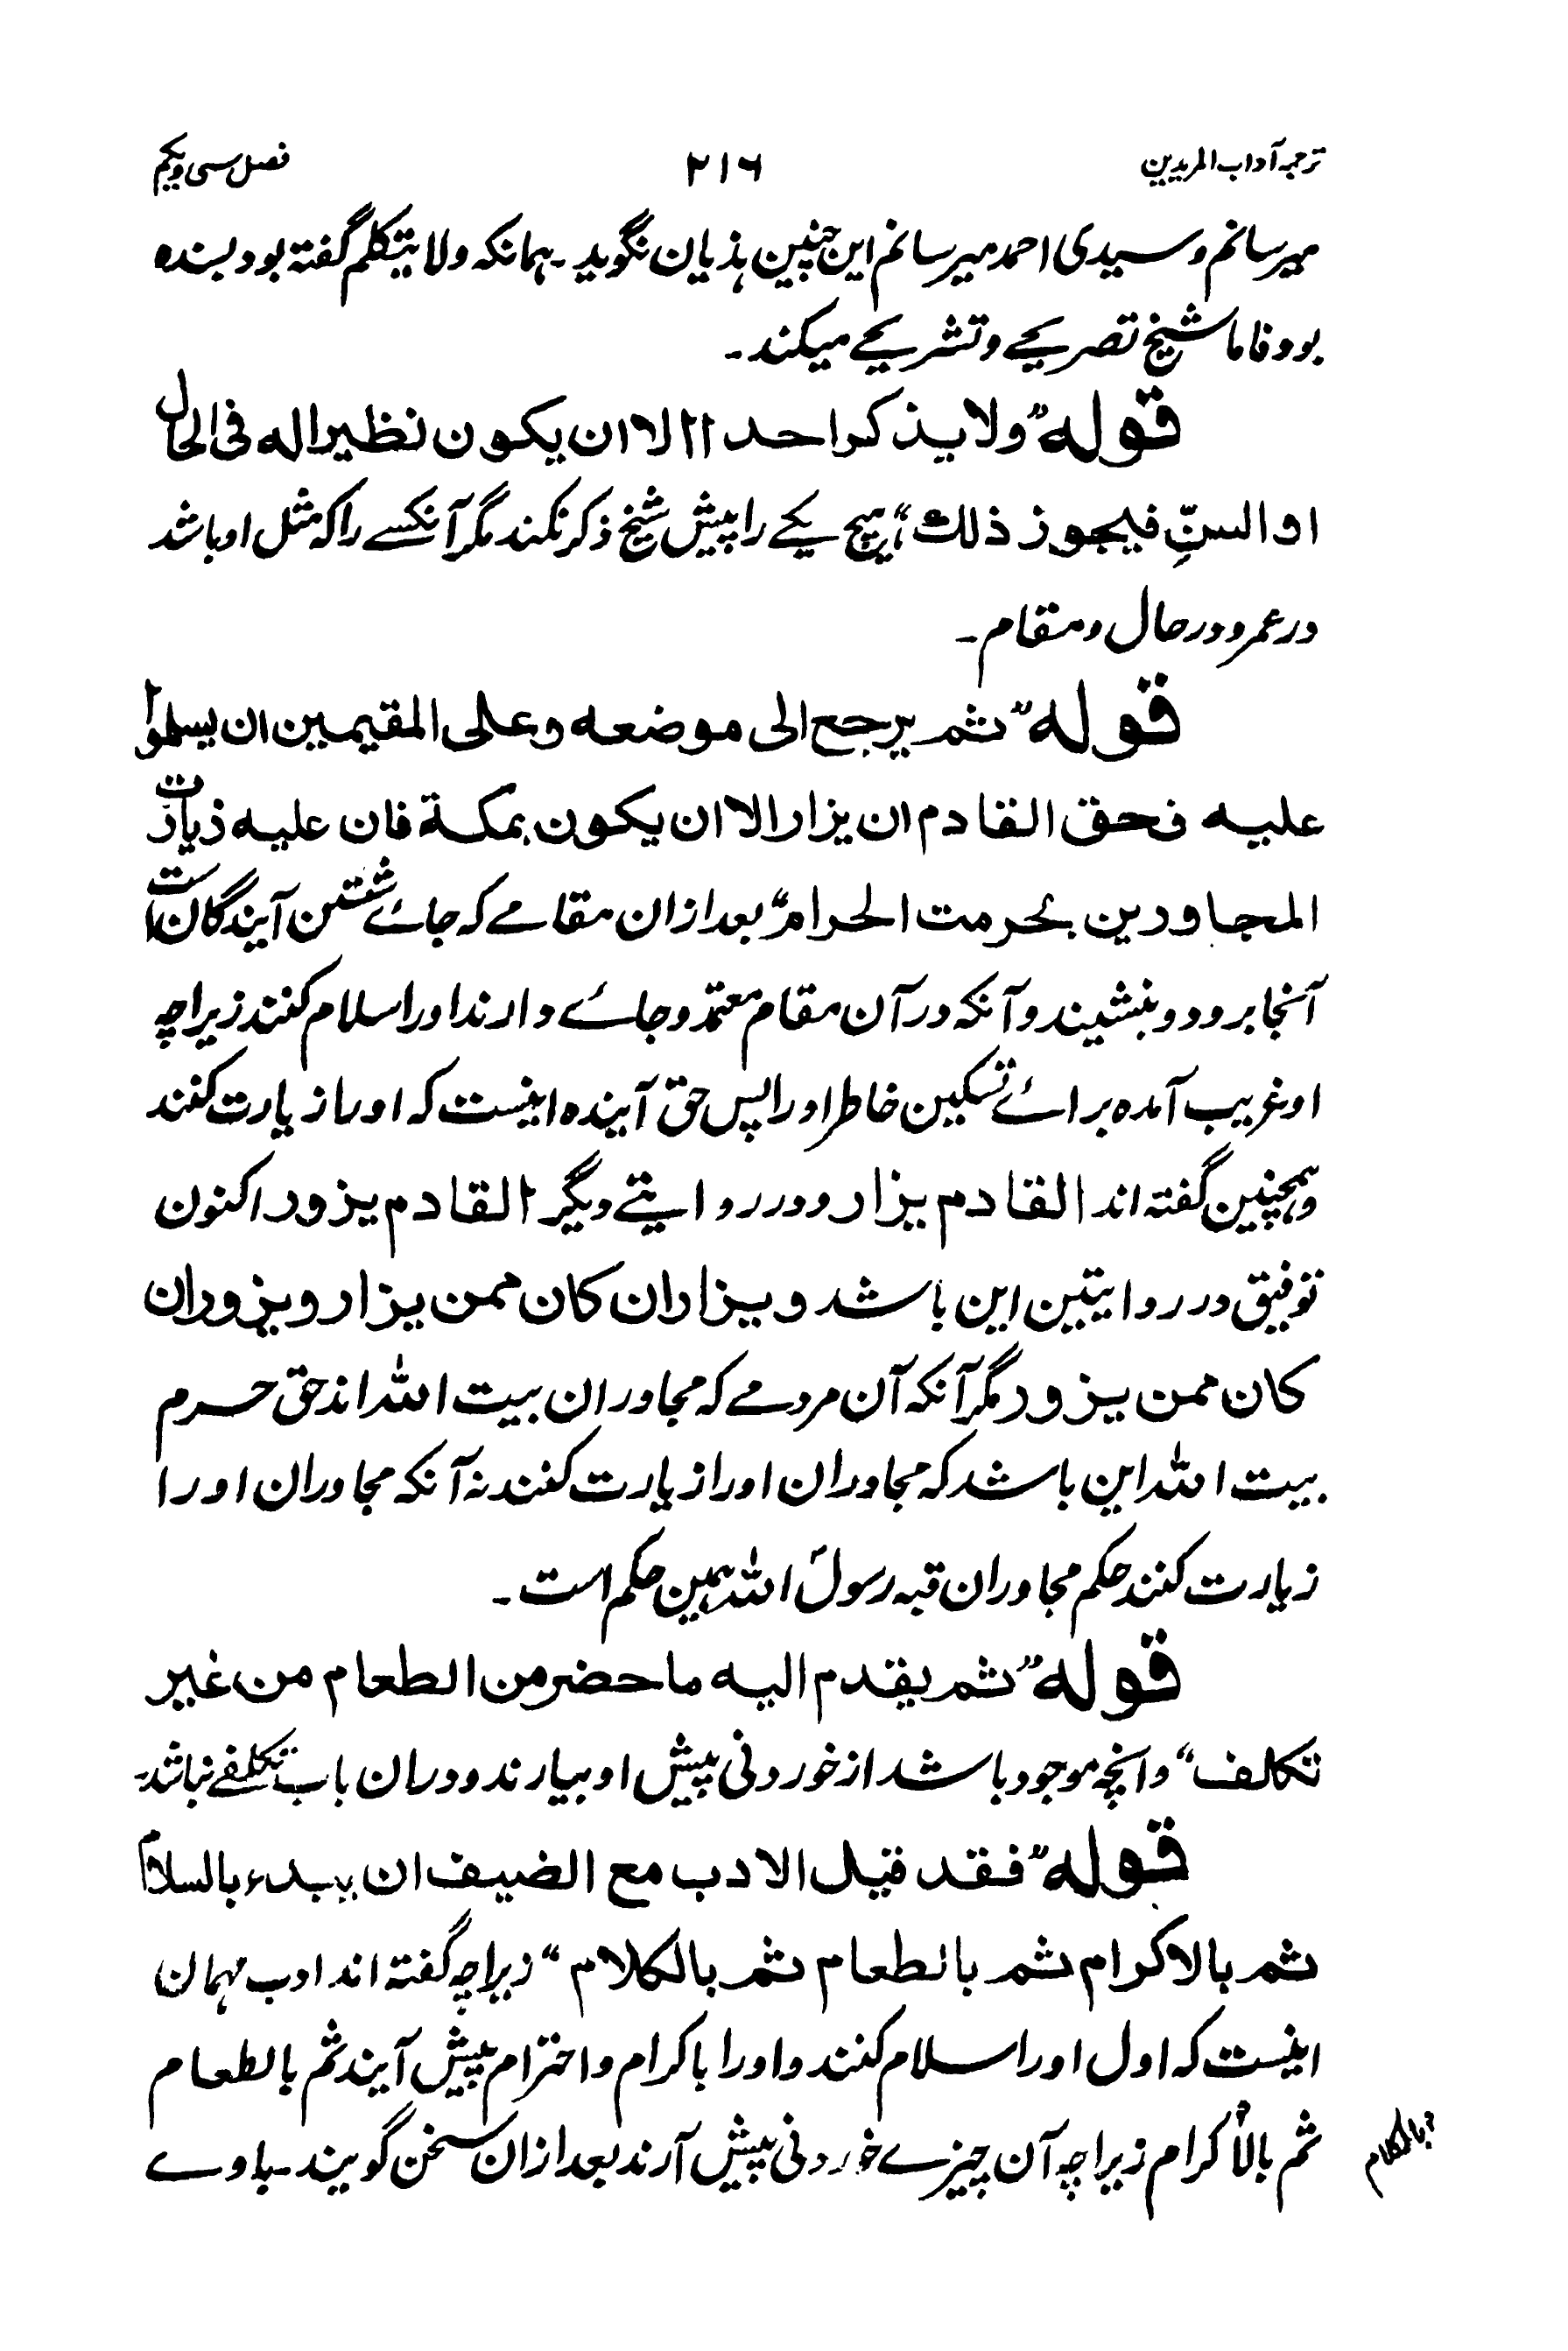 ترجمہ آداب المریدین ۲۱۶ فصل سی و یکم
میرسانم و سیدی احمد میرسانم این چنین ہذیان نگوید۔ ہمانکہ ولا یتکلم گفتہ بود بسندہ
بود فاما شیخ تصریحے و تشریحے میکند۔
قولہ ”ولا یذکر احدا الا ان یکون نظیرا لہ فی الحال
او السنّ فیجوز ذلك“ ہیچ یکے را پیش شیخ ذکر نکند مگر آنکسے را کہ مثل او باشد
در عمر و در حال و مقام۔
قولہ ”ثم یرجع الی موضعہ وعلی المقیمین ان یسلموا
علیہ فحق القادم ان یزار الا ان یکون بمکة فان علیہ زیارت
المجاورین بحرمت الحرام“ بعد ازان مقامے کہ جائے شستن آیندگان است
آنجا برود و بنشیند و آنکہ در آن مقام معتمد و جائے دارند او را سلام کنند زیراچہ
او غریب آمدہ برائے تسکین خاطر او را پس حق آیندہ اینست کہ او را زیارت کنند
و ہمچنین گفتہ اند القادم یزار و در روایتے دیگر القادم یزور اکنون
توفیق در روایتین این باشد و یزار ان کان ممن یزار و یزور ان
کان ممن یزور مگر آنکہ آن مردمے کہ مجاوران بیت اللہ اند حق حرم
بیت اللہ این باشد کہ مجاوران او را زیارت کنند نہ آنکہ مجاوران او را
زیارت کنند حکم مجاوران قبہ رسول اللہ ہمین حکم است۔
قولہ ”ثم یقدم الیہ ما حضر من الطعام من غیر
تکلف“ و انچہ موجود باشد از خوردنی پیش او بیارند و دران باب تکلفے نباشد۔
قولہ ”فقد قیل الادب مع الضیف ان یبدء بالسلام
ثم بالاکرام ثم بالطعام ثم بالکلام“ زیراچہ گفتہ اند ادب مہمان
اینست کہ اول او را سلام کنند و او را باکرام و احترام پیش آیند ثم بالطعام
ثم بالاکرام زیراچہ آن چیزے خوردنی پیش آرند بعد ازان سخن گویند۔ باوے
بالکلام